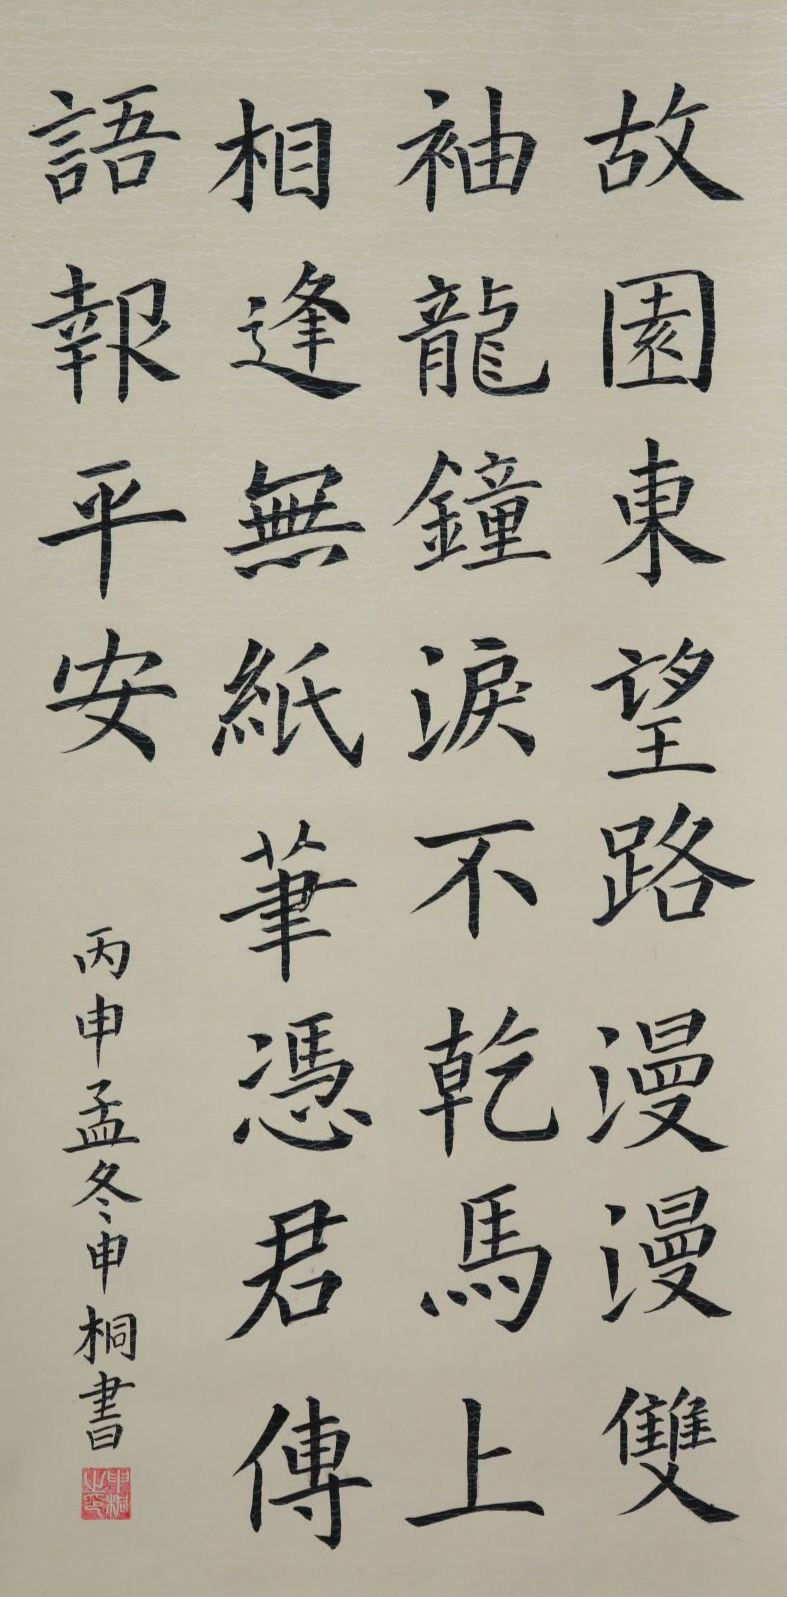 故園東望路漫漫雙
袖龍鐘淚不乾馬上
相逢無紙筆憑君傳
語報平安
丙申孟冬申桐書
申桐之印